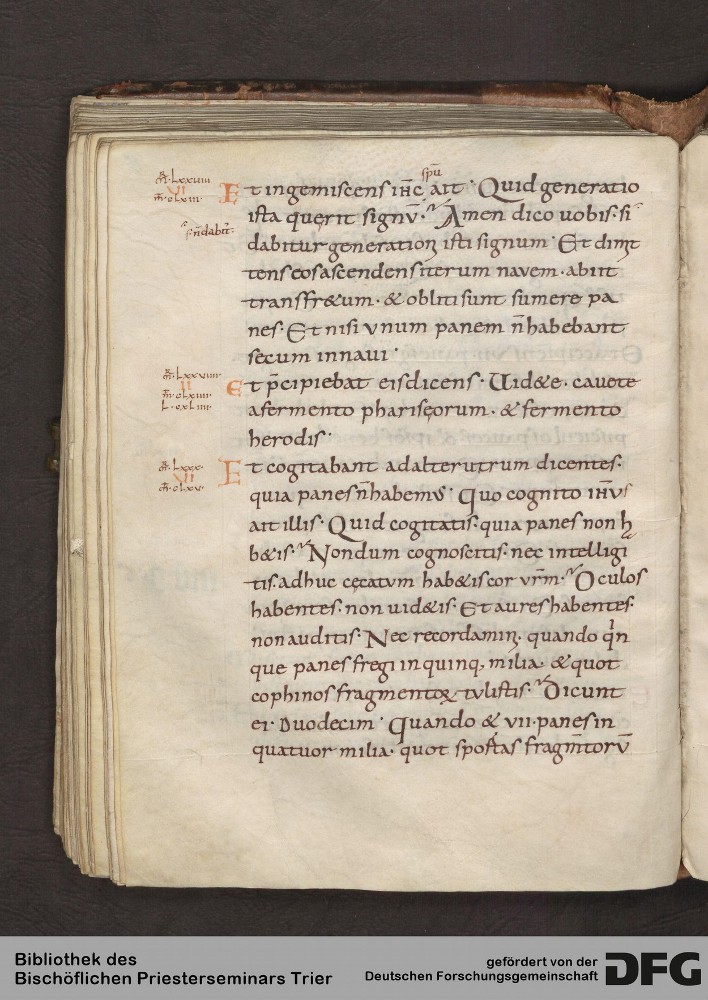 m̄r. Lxxuiiii
VI
m̄t. cLxiii.
spū
Et ingemiscens ih̄c ait· Quid generatio
ista querit signū· Amen dico uobis· si
.s. ñ dabit̄.
dabitur generationi isti signum· Et dimit
tens eos ascendens iterum navem· abiit
trans fr&um· & obliti sunt sumere pa
nes· Et nisi vnum panem n̄ habebant
secum in naui·
m̄r. Lxxuiiii
II
m̄t. cLxiiii.
L. cxLiiii.
Et p̄cipiebat eis dicens· Uid&e· cauete
a fermento phariseorum· & fermento
herodis·
m̄r. Lxxx.
VI
m̄t. cLxv.
Et cogitabant ad alterutrum dicentes·
quia panes n̄ habemus· Quo cognito ih̄us
ait illis· Quid cogitatis· quia panes non ha
b&is· Nondum cognoscitis· nec intelligi
tis· adhuc cęcatvm hab&is cor vr̄m· Oculos
habentes· non uid&is· Et aures habentes·
non auditis· Nec recordamini· quando qin
que panes fregi in quinq; milia· & quot
cophinos fragmentoꝝ tvlistis· Dicunt
ei· Duodecim· Quando & vii· panes in
quatuor milia· quot sportas fragm̄torū
Bibliothek des
Bischöflichen Priesterseminars Trier
gefördert von der
Deutschen Forschungsgemeinschaft
DFG